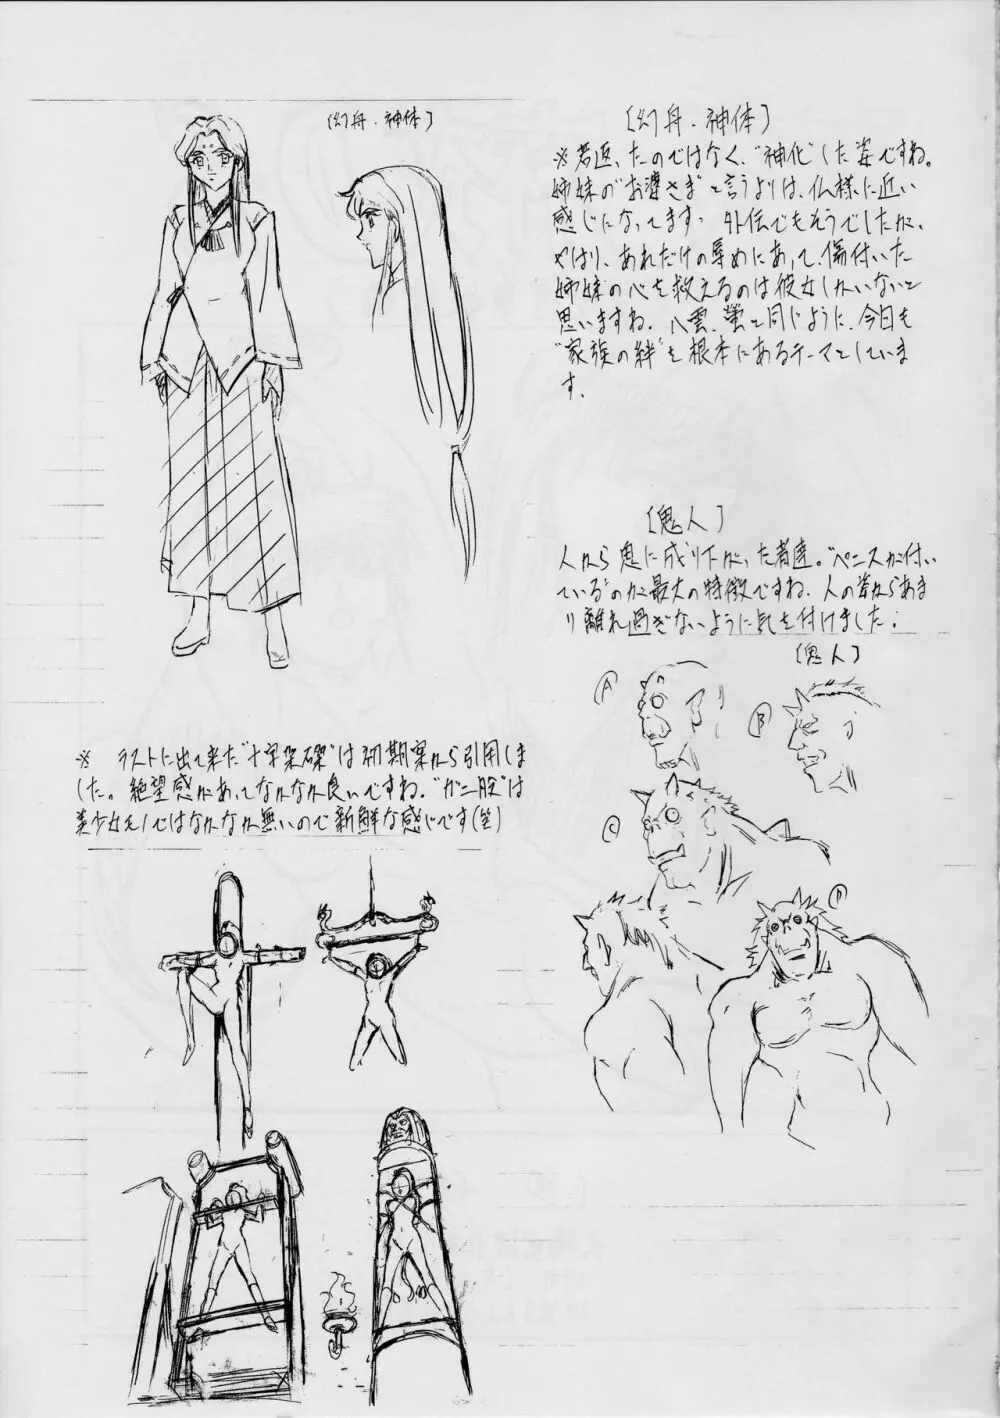 [幻舟・神体]
[幻舟・神体]
※若返ったのではなく、"神化"した姿ですね。
姉妹の"お婆さま"と言うよりは、仏様に近い
感じになってます。外伝でもそうでしたが、
やはり、あれだけの辱めにあって、傷付いた
姉妹の心を救えるのは彼女しかいないと
思いますね。八雲、蛍と同じように、今日も
"家族の絆"を根本にあるテーマとしていま
す。
[鬼人]
人から鬼に成り下がった者達。"ペニスが付い
ている"のが最大の特徴ですね。人の姿からあま
り離れ過ぎないように気を付けました。
[鬼人]
A
B
C
D
※ ラストに出て来た"十字架磔"は初期案から引用しま
した。絶望感があってなかなか良いですね。"ガニ股"は
美少女モノではなかなか無いので新鮮な感じです(笑)